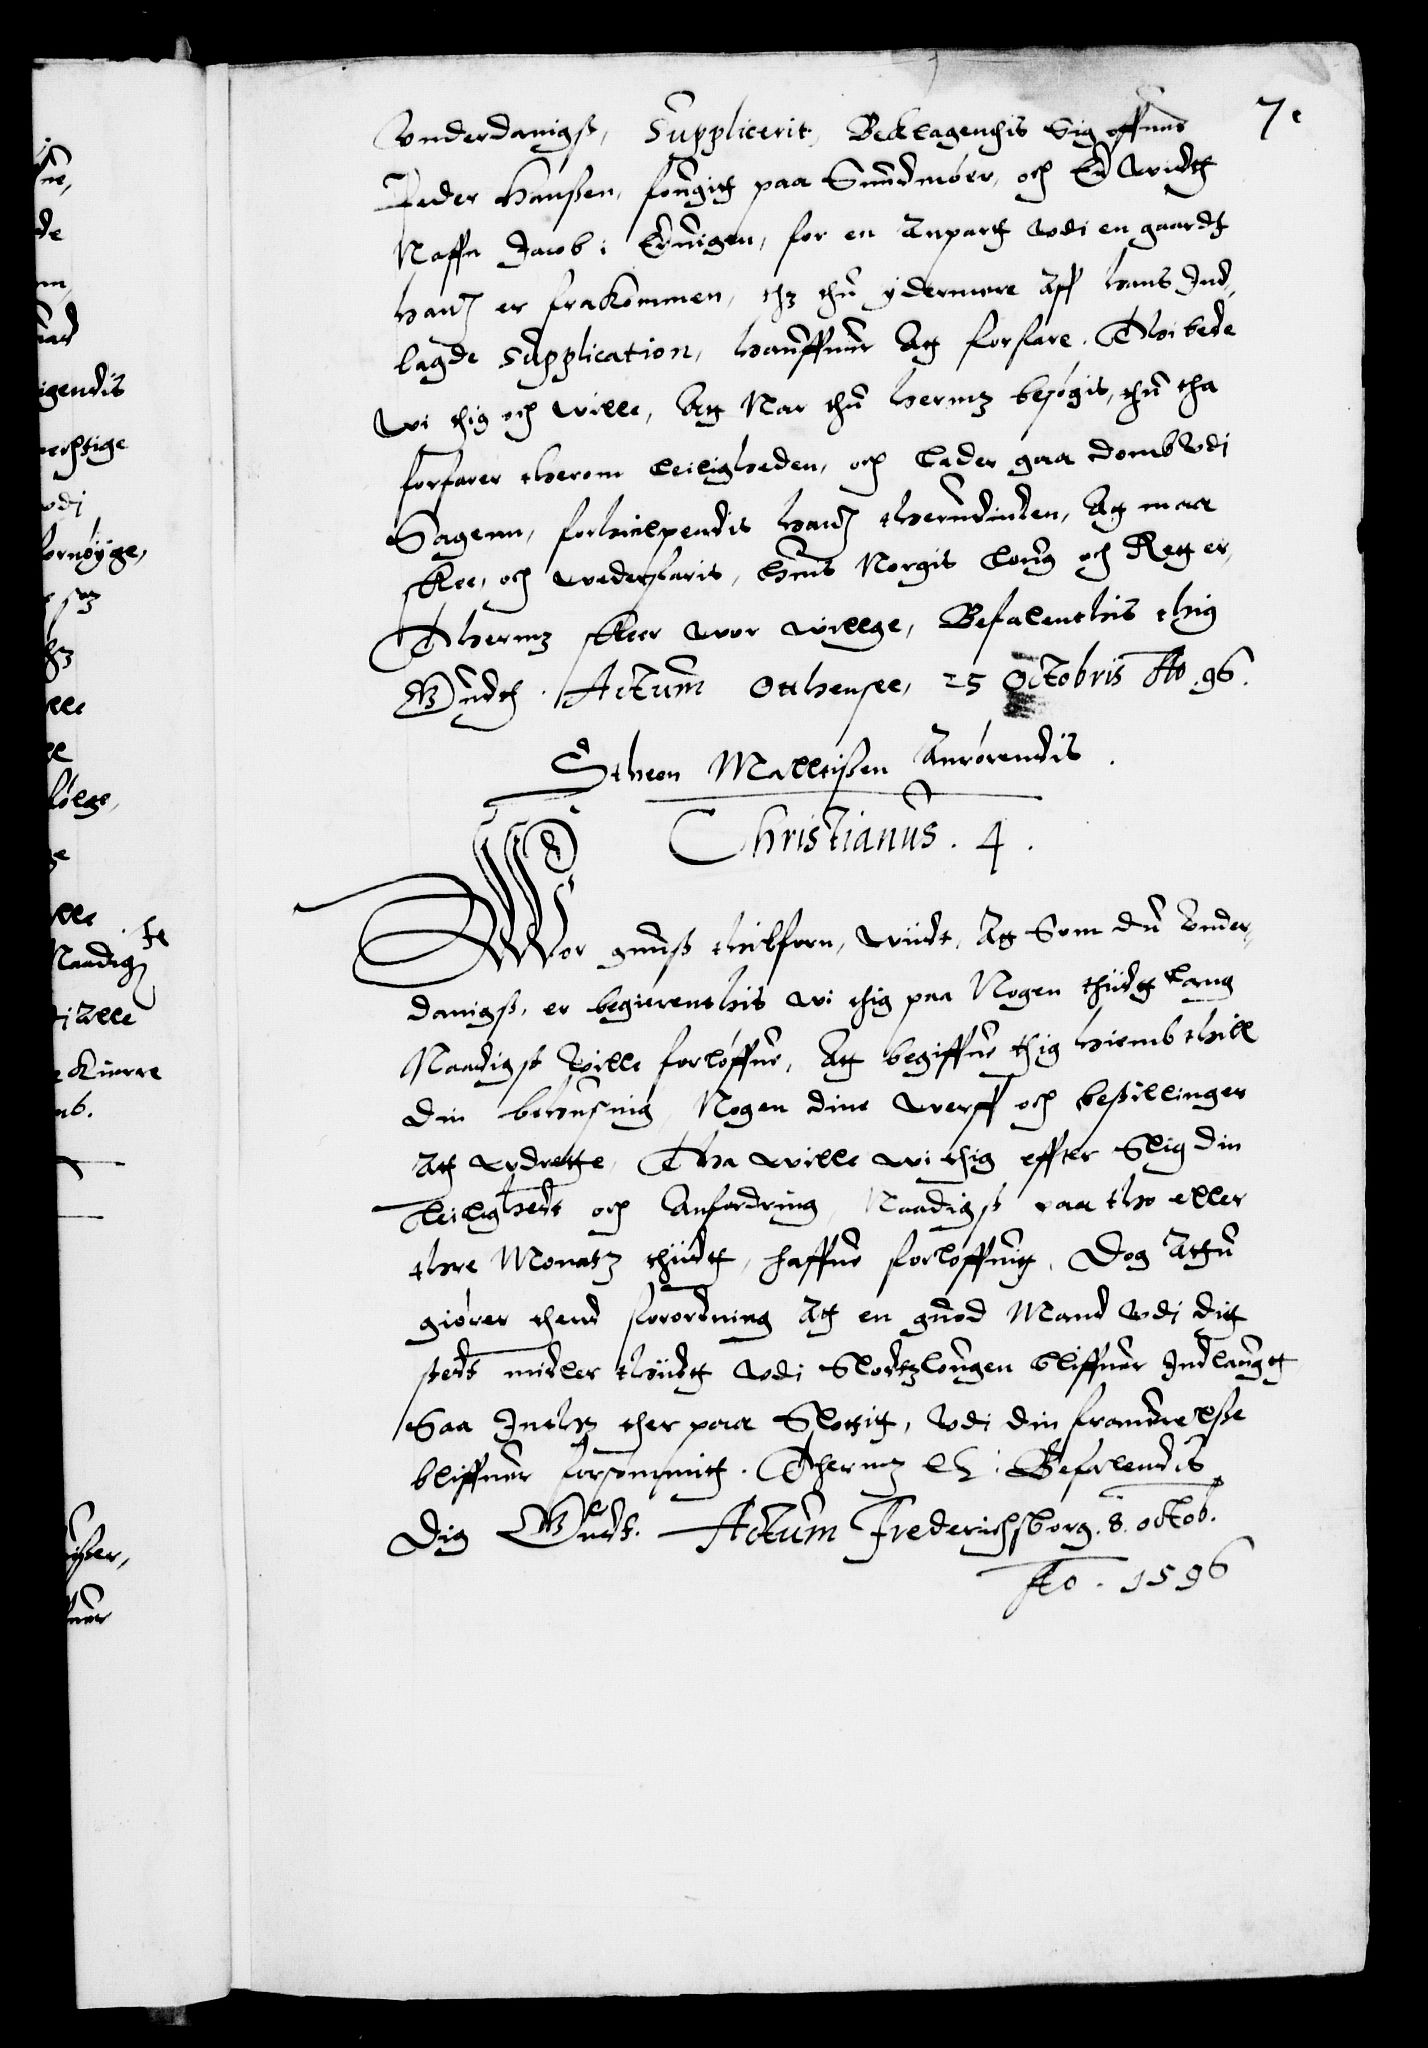 7.
Vnderdanigst, Supplicerit, Becklagenthis Sig offuer
Peder Hanssen, fougitt paa Sundmöer, och Er widtt
Naffn Jacob i Eduigen, for en Anpartt vdi en gaardt
hand er frakommen, thz thu ydermere Aff hans Ind,
lagde Supplication, haufftuer Att forfare. Thi bede
wi thig och wille, Att Nar thu hermz besögis, thu tha
forfarer therom leiligheden, och lader gaa domb Vdi
Sagenn, forhielpendis hand therudinden, Att maa
skee, och wederfaris, huis Norgis Loug och Rett er,
Thermz skeer wor willge, Befalenthis thig
Gudh. Actum Otthensee, 25 Octobris Ao. 96.
Stheen Mallthissen Anrörendis.
Christianus. 4.
Wor gunst thilforn, wiidt, Att Som du Vnder,
danigst, er begierenthis wi thig paa Nogen thiidtt lang
Naadigst wille forlöffue, Att begiffue thig hiemb thill
din behusing Nogen dine werff och bestillinger
Att vdrette, Tha wille wi thig effter Slig din
Leilighedt och Anfordring, Naadigst paa tho eller
thre Monatz thiidtt, haffue forlöffuitt, Dog Attu
giörer thend forordning Att en guod Mand vdi ditt
stedt midler thiidtt vdi Slodtzlougen bliffuer Indlaugtt
Saa Inthz ther paa Slottitt, vdi din frauerelsse
bliffuer forsömmitt. Thermz etc: Befalendis
Dig Gudt. Actum Frederichsborg. 8. octob.
Ao. 1596